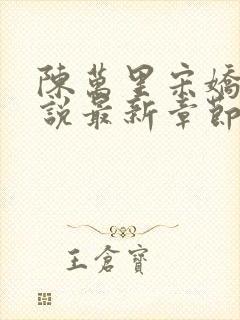 陳萬里宋嬌
說最新章節
王倉寶